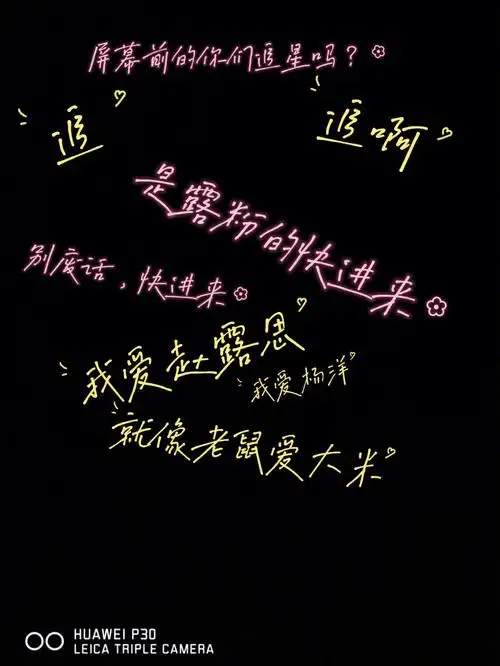 屏幕前的你们追星吗？
追
追啊
是露粉的快进来
别废话，快进来
我爱赵露思
我爱杨洋
就像老鼠爱大米
HUAWEI P30
LEICA TRIPLE CAMERA